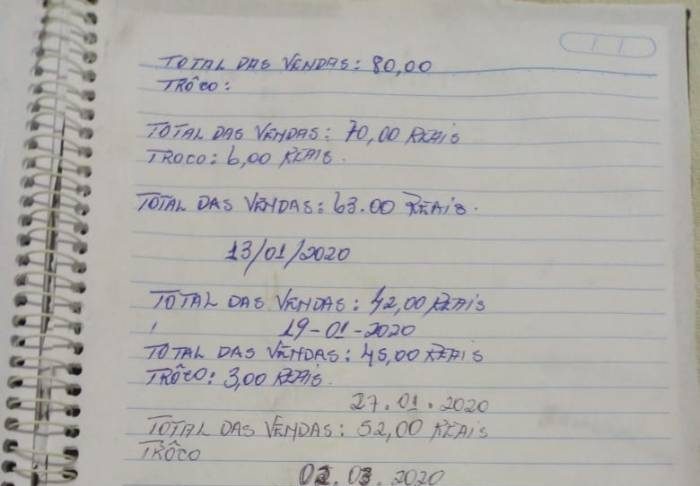 TOTAL DAS VENDAS: 80,00
TRÔCO:
TOTAL DAS VENDAS: 70,00 REAIS
TROCO: 6,00 REAIS.
TOTAL DAS VENDAS: 63.00 REAIS.
13/01/2020
TOTAL DAS VENDAS: 42,00 REAIS
19-01-2020
TOTAL DAS VENDAS: 45,00 REAIS
TRÔCO: 3,00 REAIS.
27.01.2020
TOTAL DAS VENDAS: 52,00 REAIS
TRÔCO
02.03.2020